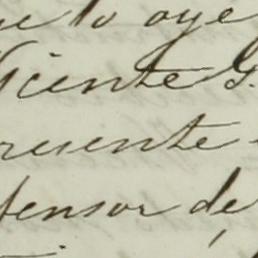 lo oye
Vicente G.
resente
fensor de